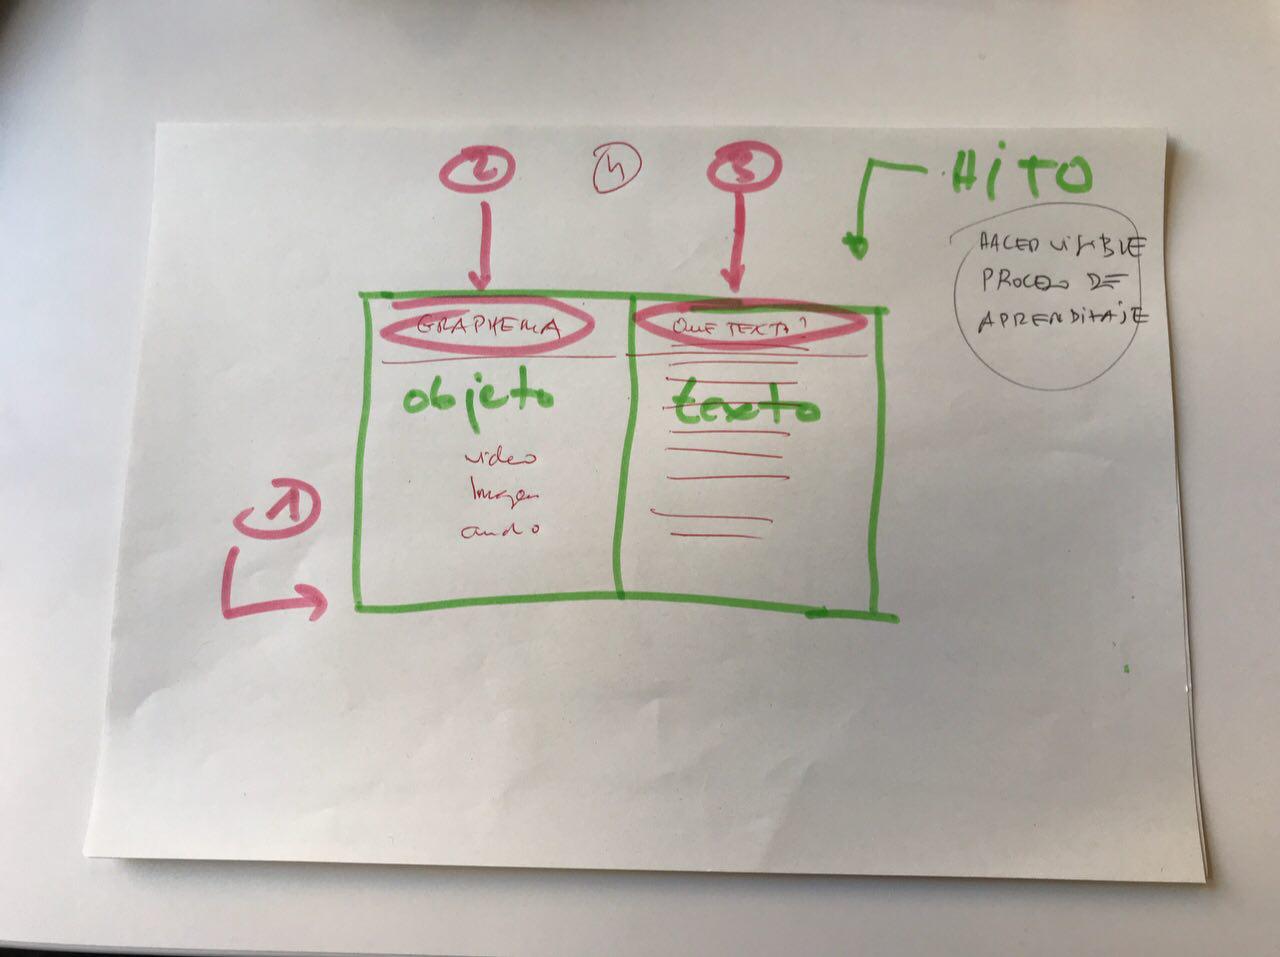 2
4
3
HiTO
HACER VISIBLE
PROCESO DE
APRENDIZAJE
GRAPHEMA
QUE TEXTO?
objeto
texto
video
Imagen
audio
1